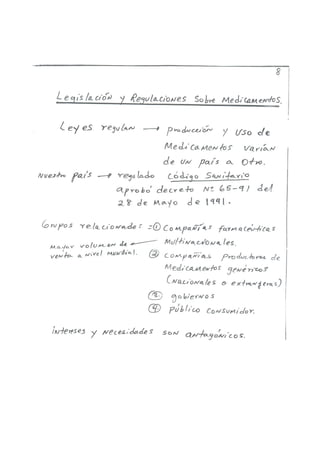 8
Legislación y Regulaciones Sobre Medicamentos.
Leyes regulan → producción y uso de
Medicamentos varían
de un país a otro.
Nuestro país → regulado código Sanitario
aprobó decreto Nº 65-91 del
28 de Mayo de 1991.
Grupos relacionados = ① Compañías farmacéuticas
Multinacionales.
Mayor volumen de ←
venta a nivel mundial.
② Compañías productoras de
Medicamentos genéricos
(Nacionales o extranjeras)
③ gobiernos
④ público consumidor.
intereses y necesidades son antagónicos.